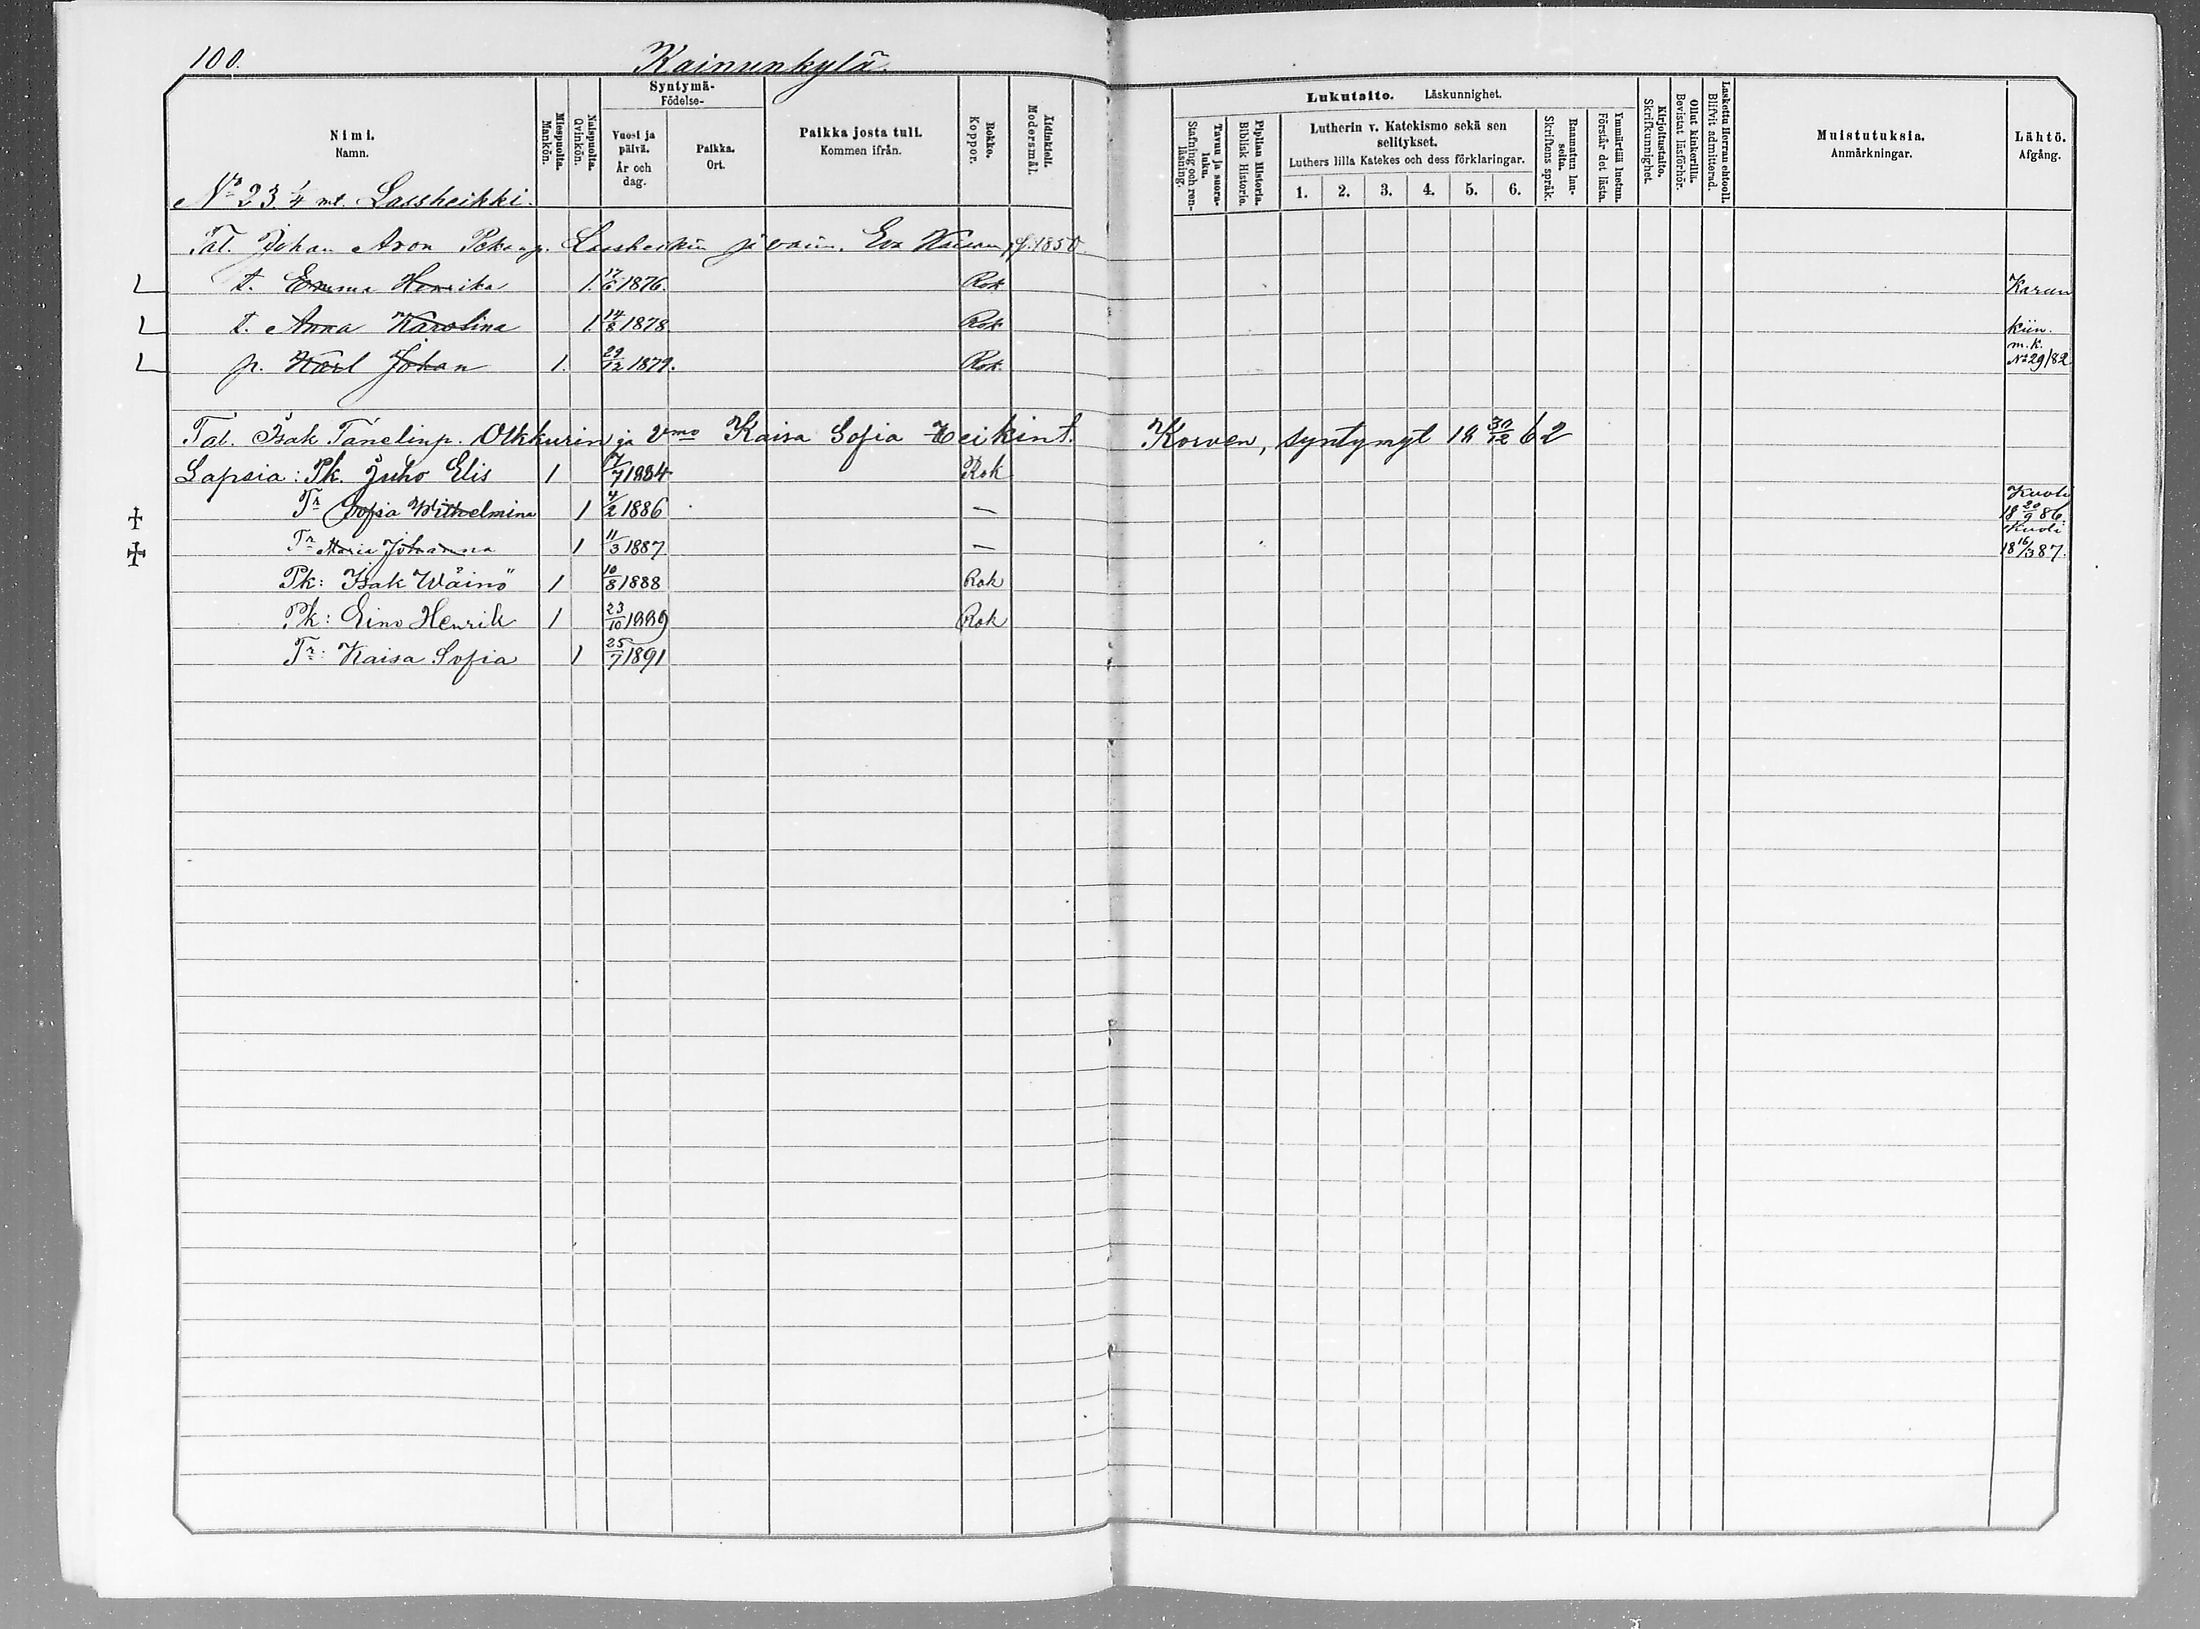 100.
Kainunkylä.
Nimi. Namn.
Miespuolta. Mankön.
Naispuolta. Qvinkön.
Syntymä- Födelse-
Vuosi ja päivä. År och dag.
Paikka. Ort.
Paikka josta tuli. Kommen ifrån.
Rokko. Koppor.
Äidinkieli. Modersmål.
Lukutaito. Läskunnighet.
Tavuu ja suora-luku. Stafning och ren-läsning.
Piplian Historia. Biblisk Historie.
Lutherin v. Katekismo sekä sen selitykset.
Luthers lilla Katekes och dess förklaringar.
1. 2. 3. 4. 5. 6.
Raamatun lau-seita. Skriftens språk.
Ymmärtää luetun. Förstår det lästa.
Kirjoitustaito. Skrifkunnighet.
Ollut kinkerillä. Bevistat läsförhör.
Laskettu Herran ehtooll. Blifvit admitterad.
Muistutuksia. Anmärkningar.
Lähtö. Afgång.
No 23 1/4 mt. Lassheikki.
Tal. Johan Aron Pekanp. Lassheikin ja vaim. Eva f. 1850
t. Emma Henrika 1. 17/6 1876. Rok Karun
t. Anna Karolina 1. 14/8 1878 Rok kiin.
p. Karl Johan 1. 29/12 1879. Rok m.k. No 29/82
Tal. Isak Tanelinp. Olkkurin ja Vmo Kaisa Sofia Heikint. Korven, syntynyt 18 30/12 62
Lapsia: Pk. Juho Elis 1 17/7 1884 Rok
Tr Sofia Wilhelmina 1 4/2 1886 — Kuoli 18 20/9 86
Tr Maria Johanna 1 11/3 1887 — Kuoli 18 16/3 87.
Pk: Isak Wäinö 1 10/8 1888 Rok
Pk: Eino Henrik 1 23/10 1889 Rok
Tr: Kaisa Sofia 1 25/7 1891